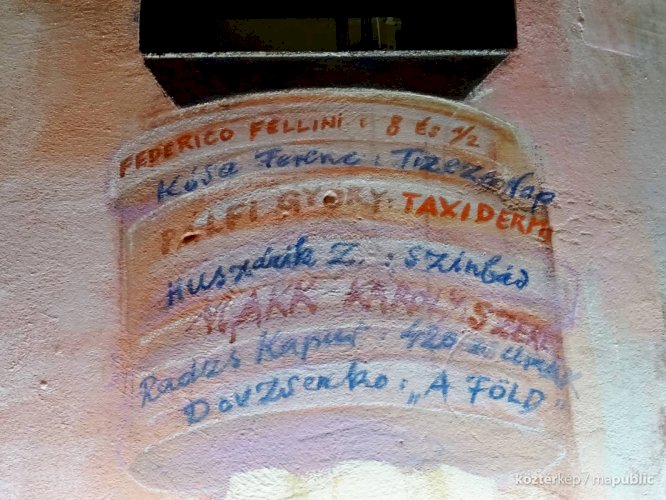 FEDERICO FELLINI : 8 És 1/2
Kósa Ferenc : Tízezer Nap
PÁLFI GYÖRGY: TAXIDERMIA
HUSZárik Z. : Szinbád
MAKK KÁROLY SZEREL
Radzs Kapur : 420 as
DOVZSenko : „A FÖLD”
kozterkep / mapublic